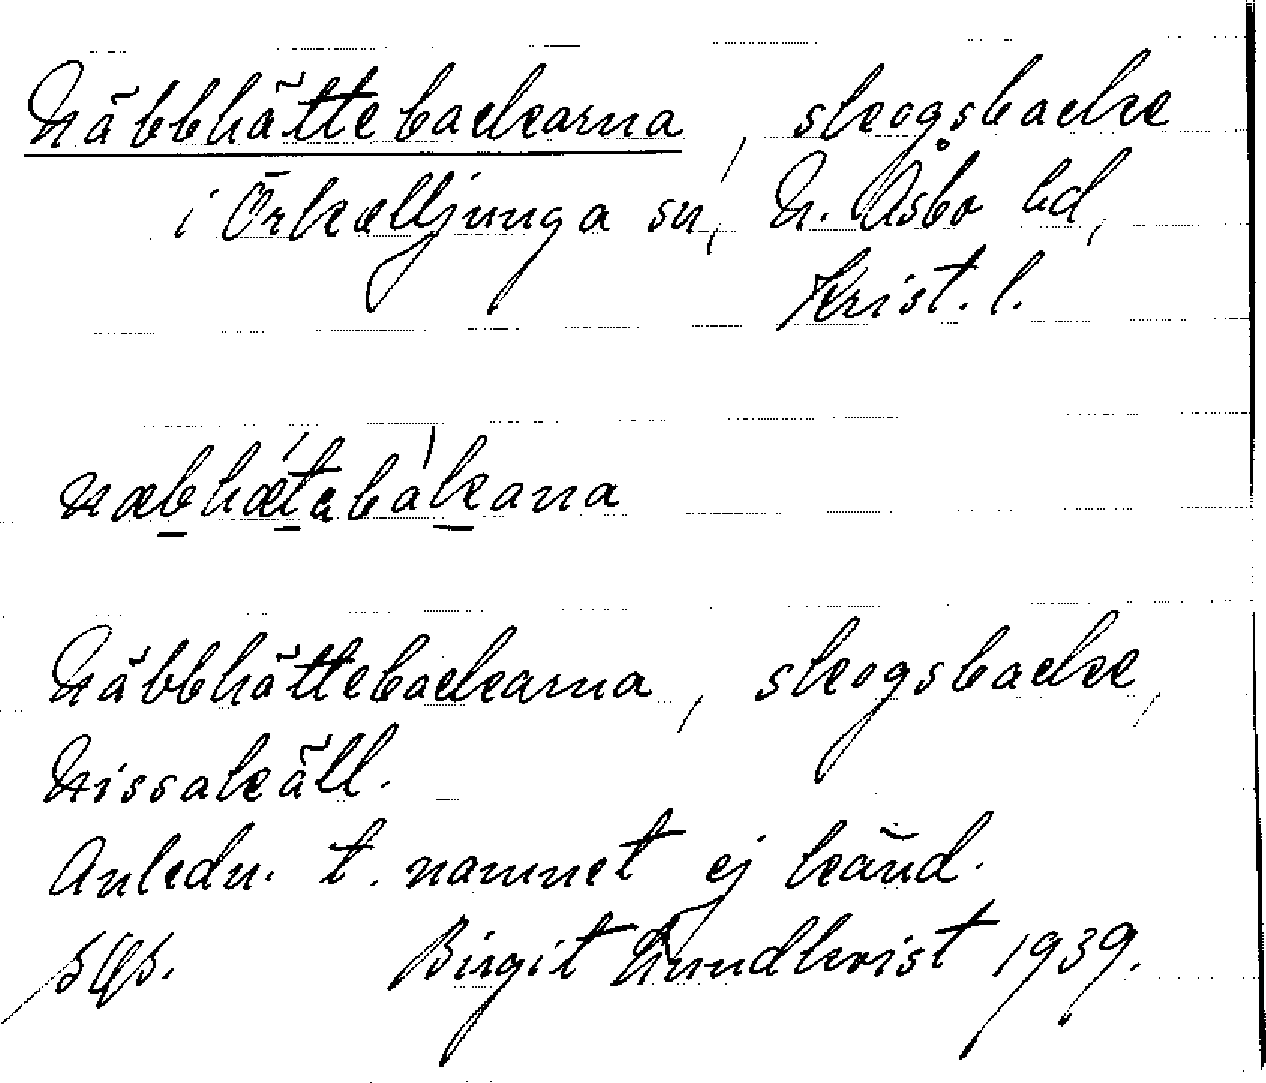 Näbbhättebackarna, skogsbacke
i Örkelljunga sn, N. Åsbo hd,
Krist. l.
næbhætabakana
Näbbhättebackarna, skogsbacke,
Nissakäll.
Anledn. t. namnet ej känd.
Birgit Lundkvist 1939.